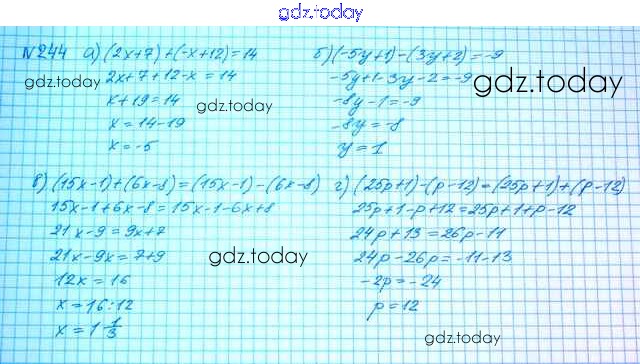 gdz.today
№244 а) (2x+7)+(-x+12)=14
2x+7+12-x=14
x+19=14
x=14-19
x=-5
б) (-5y+1)-(3y+2)=-9
-5y+1-3y-2=-9
-8y-1=-9
-8y=-8
y=1
gdz.today
gdz.today
gdz.today
в) (15x-1)+(6x-8)=(15x-1)-(6x-8)
15x-1+6x-8=15x-1-6x+8
21x-9=9x+7
21x-9x=7+9
12x=16
x=16:12
x=1 1/3
г) (25p+1)-(p-12)=(25p+1)+(p-12)
25p+1-p+12=25p+1+p-12
24p+13=26p-11
24p-26p=-11-13
-2p=-24
p=12
gdz.today
gdz.today